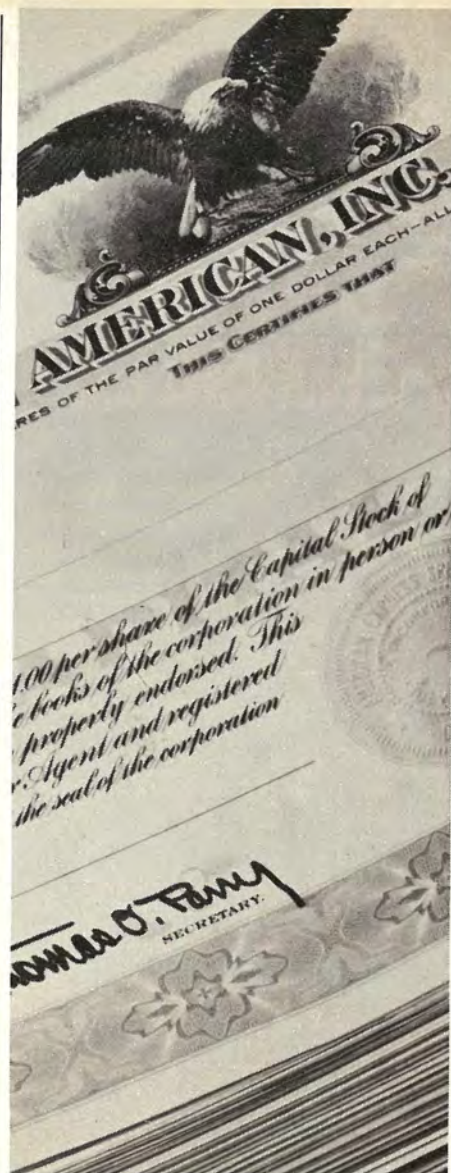 AMERICAN, INC.
RES OF THE PAR VALUE OF ONE DOLLAR EACH–ALL
THIS CERTIFIES THAT
1.00 per share of the Capital Stock of
e books of the corporation in person or
properly endorsed. This
r Agent and registered
the seal of the corporation
omas O. Parry
SECRETARY.